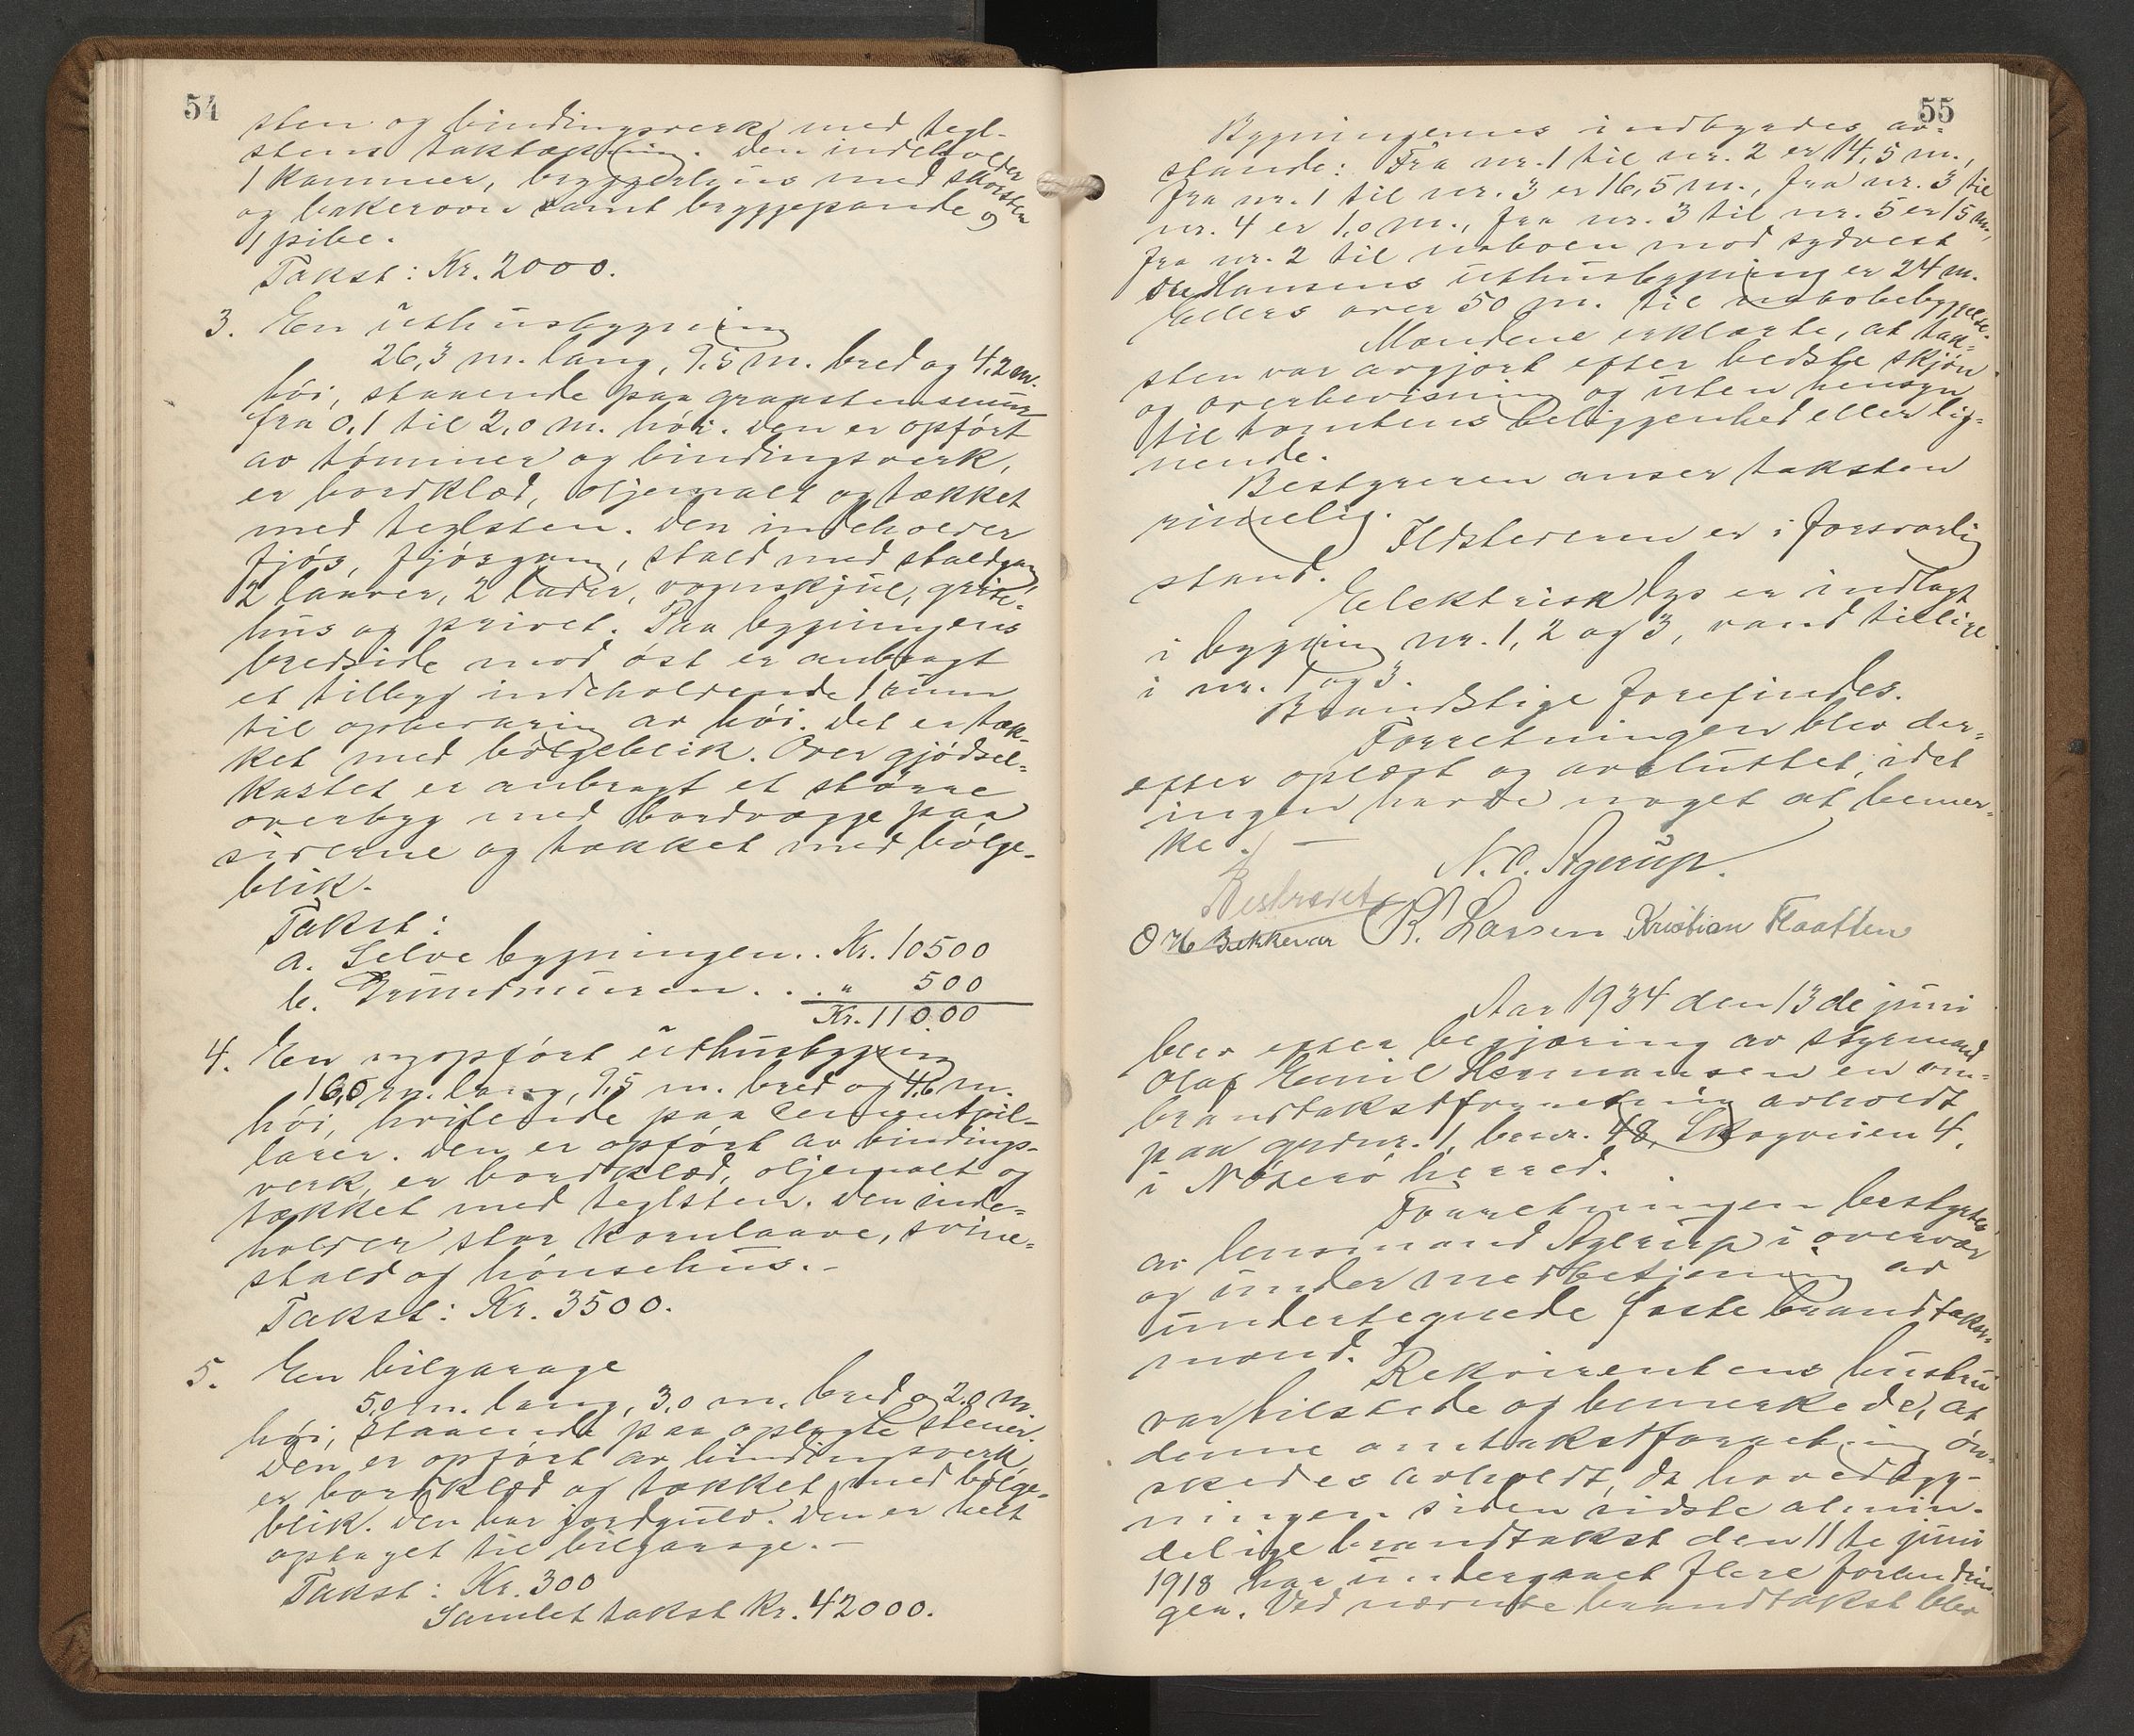 54
sten og bindingsverk med tegl-
stens taktækning. Den indeholder
1 kammer, bryggerhus med skorsten
og bakerovn samt bryggepande og
1 pibe.
Takst: Kr. 2000.
3. En uthusbygning
26,3 m. lang, 9,5 m. bred og 4,2 m.
høi, staaende paa graastensmur
fra 0,1 til 2,0 m. høi. Den er opført
av tømmer og bindingsverk,
er bordklæd, oljemalt og tækket
med teglsten. Den indeholder
fjøs, fjøsgang, stald med staldgang,
2 laaver, 2 lader, vognskjul, grise-
hus og privet. Paa bygningens
bredside mod øst er anbragt
et tilbygg indeholdende 1 rum
til opbevaring av høi. Det er tæk-
ket med bølgeblik. Over gjødsel-
kastet er anbragt et større
overbygg med bordvægge paa
siderne og tækket med bølge-
blik.
Takst:
a. Selve bygningen.. Kr. 10500
b. Grundmuren. ... " 500
Kr. 11000
4. En nyopført uthusbygning
16,0 m. lang, 9,5 m. bred og 4,6 m.
høi, hvilende paa cementpil-
larer. Den er opført av bindings-
verk, er bordklæd, oljemalt og
tækket med teglsten. Den inde-
holder stor kornlaave, svine-
stald og hønsehus. -
Takst: Kr. 3500.
5. En bilgarage
5,0 m. lang, 3,0 m. bred og 2,0 m.
høi, staaende paa oplagte stener.
Den er opført av bindingsverk,
er bordklæd og tækket med bølge-
blik. Den har jordgulv. Den er helt
optaget til bilgarage. -
Takst: Kr. 300
Samlet takst Kr. 42000.
55
Bygningernes indbyrdes av-
stande: Fra nr. 1 til nr. 2 er 14,5 m.,
fra nr. 1 til nr. 3 er 16,5 m., fra nr. 3 til
nr. 4 er 1,0 m., fra nr. 3 til nr. 5 er 15 m.,
fra nr. 2 til naboen mod sydvest
Ole Hansens uthusbygning er 24 m.
Ellers over 50 m. til nabobebyggelse.
Mændene erklærte, at tak-
sten var avgjort efter bedste skjøn
og overbevisning og uten hensyn
til tomtens beliggenhed eller lig-
nende.
Bestyreren anser taksten
rimelig.
Ildstederne er i forsvarlig
stand.
Elektrisk lys er indlagt
i bygning nr. 1, 2 og 3, vand tillige
i nr. 1 og 3.
Brandstige forefindes.
Forretningen blev der-
efter oplæst og avsluttet, idet
ingen havde noget at bemer-
ke. -
N. C. Agerup.
Bestyret
O H Bekkevar R. Larsen Kristian Flaatten
Aar 1934 den 13de juni
blev efter begjæring av styrmand
Olaf Emil Hermansen en om-
brandtakstforretning avholdt
paa grdnr. 1, brnr. 48, Skogveien 4,
i Nøterø herred.
Forretningen bestyrtes
av lensmand Agerup i overvær
og under medbetjening av
undertegnede faste brandtakst-
mænd.
Rekvirentens hustru
var tilstede og bemerkede, at
denne omtakstforretning øn-
skedes avholdt, da hovedbyg-
ningen siden sidste almin-
delige brandtakst den 11te juni
1918 har undergaaet flere forandrin-
ger. Ved nævnte brandtakst blev